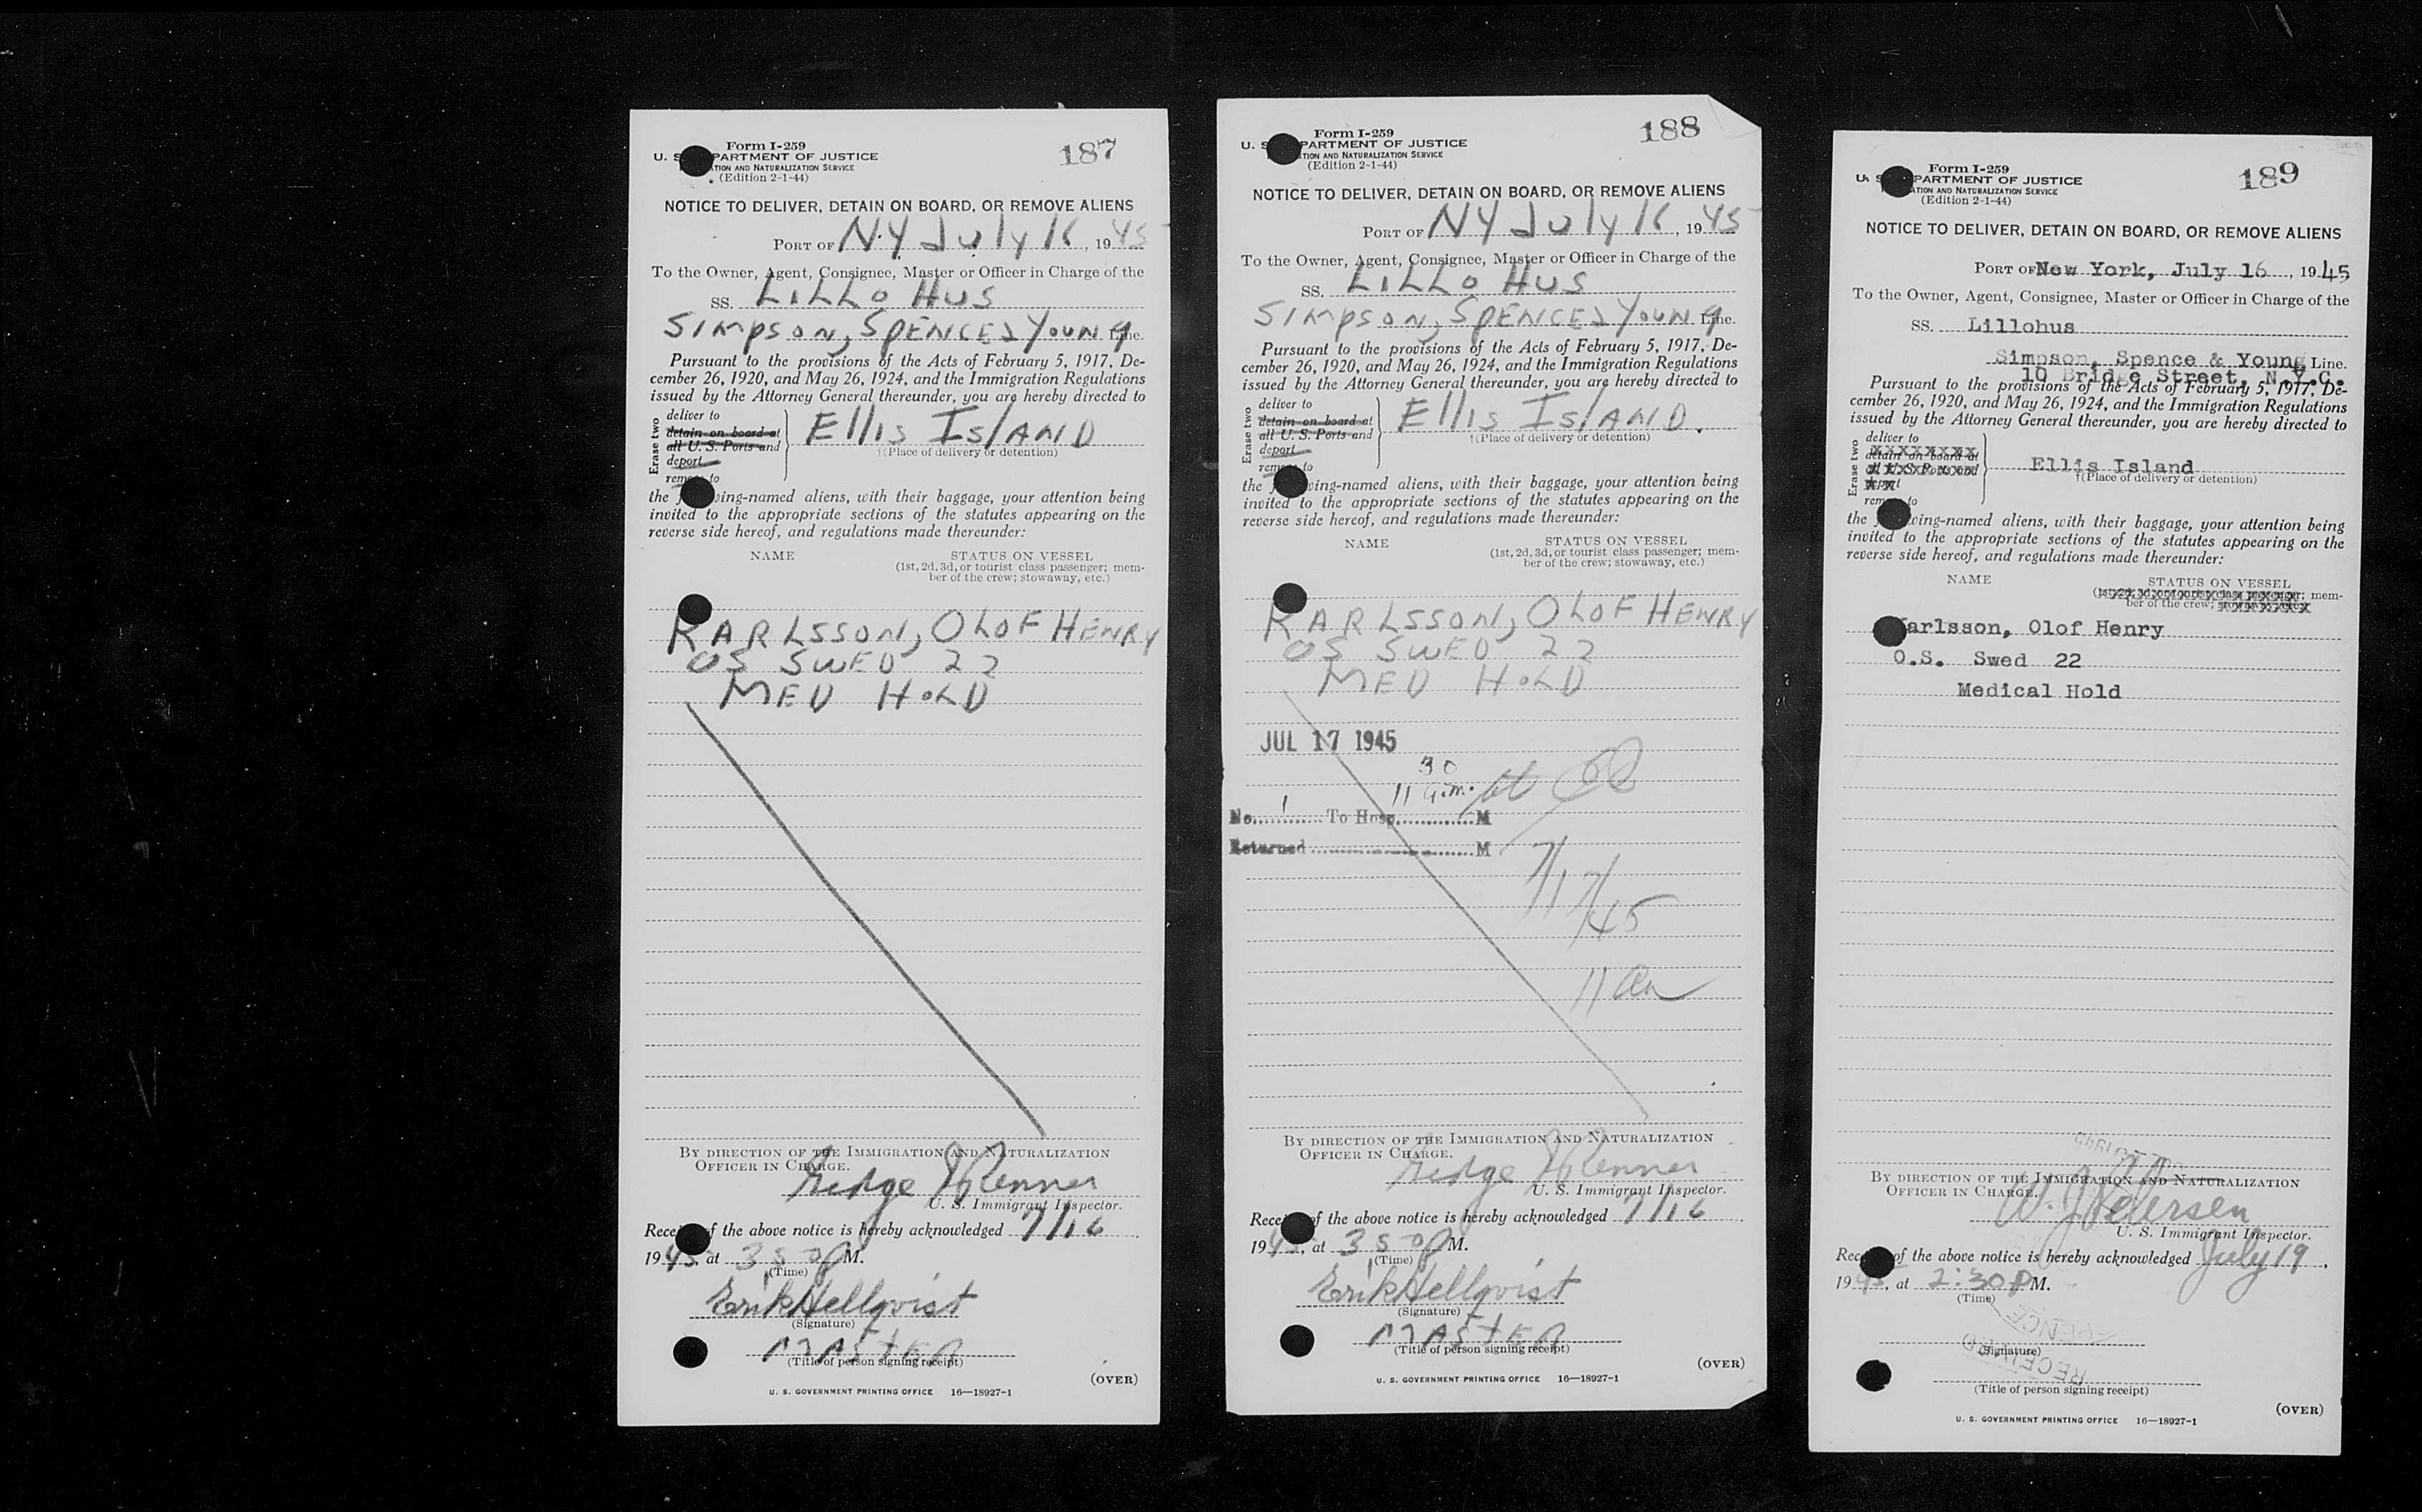 187
Form I-259
U. S. DEPARTMENT OF JUSTICE
IMMIGRATION AND NATURALIZATION SERVICE
(Edition 2-1-44)
NOTICE TO DELIVER, DETAIN ON BOARD, OR REMOVE ALIENS
PORT OF NY July 16, 1945
To the Owner, Agent, Consignee, Master or Officer in Charge of the
SS. LILLO HUS
SIMPSON, SPENCE & YOUNG Line.
Pursuant to the provisions of the Acts of February 5, 1917, De-
cember 26, 1920, and May 26, 1924, and the Immigration Regulations
issued by the Attorney General thereunder, you are hereby directed to
Erase two
deliver to
detain on board at
all U. S. Ports and
deport
remove to
Ellis ISLAND
†(Place of delivery or detention)
the following-named aliens, with their baggage, your attention being
invited to the appropriate sections of the statutes appearing on the
reverse side hereof, and regulations made thereunder:
NAME STATUS ON VESSEL
(1st, 2d, 3d, or tourist class passenger; mem-
ber of the crew; stowaway, etc.)
KARLSSON, OLOF HENRY
OS SWED 22
MED HOLD
BY DIRECTION OF THE IMMIGRATION AND NATURALIZATION
OFFICER IN CHARGE.
U. S. Immigrant Inspector.
Receipt of the above notice is hereby acknowledged 7/16,
1945, at 3 50 P M.
(Time)
Erik Hellqvist
(Signature)
MASTER
(Title of person signing receipt)
(OVER)
U. S. GOVERNMENT PRINTING OFFICE 16—18927-1
188
Form I-259
U. S. DEPARTMENT OF JUSTICE
IMMIGRATION AND NATURALIZATION SERVICE
(Edition 2-1-44)
NOTICE TO DELIVER, DETAIN ON BOARD, OR REMOVE ALIENS
PORT OF NY July 16, 1945
To the Owner, Agent, Consignee, Master or Officer in Charge of the
SS. LILLO HUS
SIMPSON, SPENCE & YOUNG Line.
Pursuant to the provisions of the Acts of February 5, 1917, De-
cember 26, 1920, and May 26, 1924, and the Immigration Regulations
issued by the Attorney General thereunder, you are hereby directed to
Erase two
deliver to
detain on board at
all U. S. Ports and
deport
remove to
Ellis ISLAND.
†(Place of delivery or detention)
the following-named aliens, with their baggage, your attention being
invited to the appropriate sections of the statutes appearing on the
reverse side hereof, and regulations made thereunder:
NAME STATUS ON VESSEL
(1st, 2d, 3d, or tourist class passenger; mem-
ber of the crew; stowaway, etc.)
KARLSSON, OLOF HENRY
OS SWED 22
MED HOLD
JUL 17 1945
30
11 a.m.
No. 1 To Hosp. M
Returned M
7/17/45
11 am
BY DIRECTION OF THE IMMIGRATION AND NATURALIZATION
OFFICER IN CHARGE.
U. S. Immigrant Inspector.
Receipt of the above notice is hereby acknowledged 7/16,
1945, at 3 50 P M.
(Time)
Erik Hellqvist
(Signature)
MASTER
(Title of person signing receipt)
(OVER)
U. S. GOVERNMENT PRINTING OFFICE 16—18927-1
189
Form I-259
U. S. DEPARTMENT OF JUSTICE
IMMIGRATION AND NATURALIZATION SERVICE
(Edition 2-1-44)
NOTICE TO DELIVER, DETAIN ON BOARD, OR REMOVE ALIENS
PORT OF New York, July 16, 1945
To the Owner, Agent, Consignee, Master or Officer in Charge of the
SS. Lillohus
Simpson, Spence & Young Line.
10 Bridge Street, N.Y.C.
Pursuant to the provisions of the Acts of February 5, 1917, De-
cember 26, 1920, and May 26, 1924, and the Immigration Regulations
issued by the Attorney General thereunder, you are hereby directed to
Erase two
deliver to
detain on board at
all U. S. Ports and
deport
remove to
Ellis Island
†(Place of delivery or detention)
the following-named aliens, with their baggage, your attention being
invited to the appropriate sections of the statutes appearing on the
reverse side hereof, and regulations made thereunder:
NAME STATUS ON VESSEL
(1st, 2d, 3d, or tourist class passenger; mem-
ber of the crew; stowaway, etc.)
Karlsson, Olof Henry
O.S. Swed 22
Medical Hold
BY DIRECTION OF THE IMMIGRATION AND NATURALIZATION
OFFICER IN CHARGE.
W. J. Petersen
U. S. Immigrant Inspector.
Receipt of the above notice is hereby acknowledged July 19,
1945, at 2:30 P M.
(Time)
(Signature)
RECEIVED
(Title of person signing receipt)
(OVER)
U. S. GOVERNMENT PRINTING OFFICE 16—18927-1